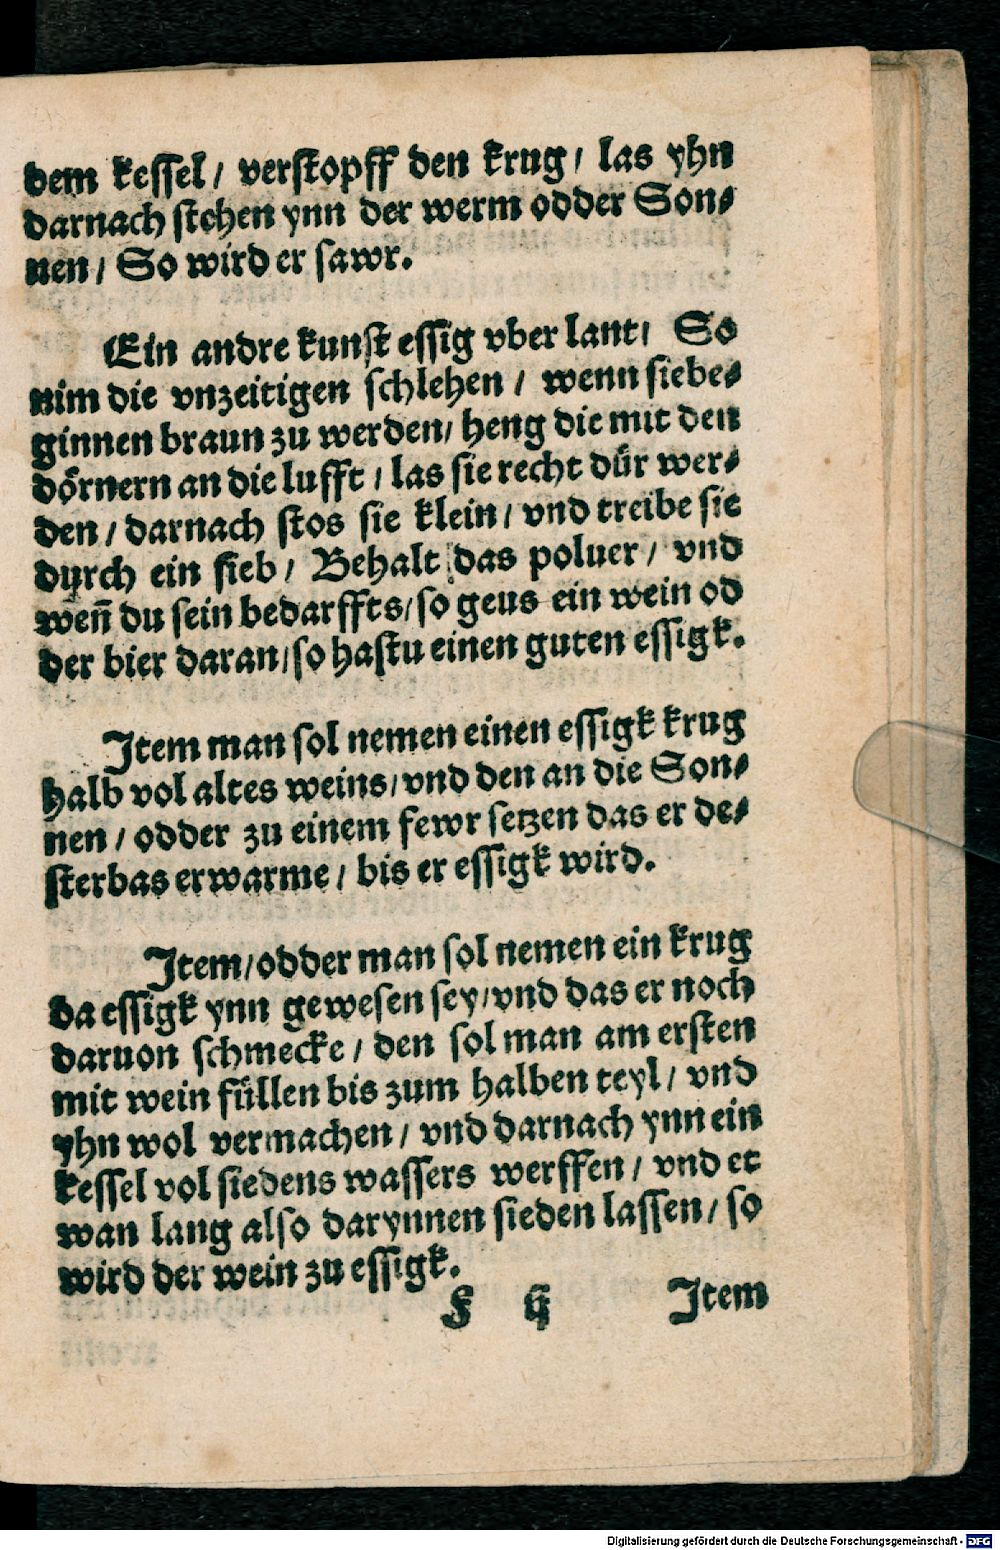 dem kessel / verstopff den krug / las yhn
darnach stehen ynn der werm odder Son⸗
nen / So wird er sawr.
Ein andre kunst essig vber lant / So
nim die vnzeitigen schlehen / wenn siebe⸗
ginnen braun zu werden / heng die mit den
dörnern an die lufft / las sie recht dür wer⸗
den / darnach stos sie klein / vnd treibe sie
durch ein sieb / Behalt das poluer / vnd
weñ du sein bedarffts / so geus ein wein od
der bier daran / so hastu einen guten essigk.
Item man sol nemen einen essigk krug
halb vol altes weins / vnd den an die Son⸗
nen / odder zu einem fewr setzen das er de⸗
sterbas erwarme / bis er essigk wird.
Item / odder man sol nemen ein krug
da essigk ynn gewesen sey / vnd das er noch
daruon schmecke / den sol man am ersten
mit wein füllen bis zum halben teyl / vnd
yhn wol vermachen / vnd darnach ynn ein
kessel vol siedens wassers werffen / vnd et
wan lang also darynnen sieden lassen / so
wird der wein zu essigk.
F ij Item
Digitalisierung gefördert durch die Deutsche Forschungsgemeinschaft - DFG